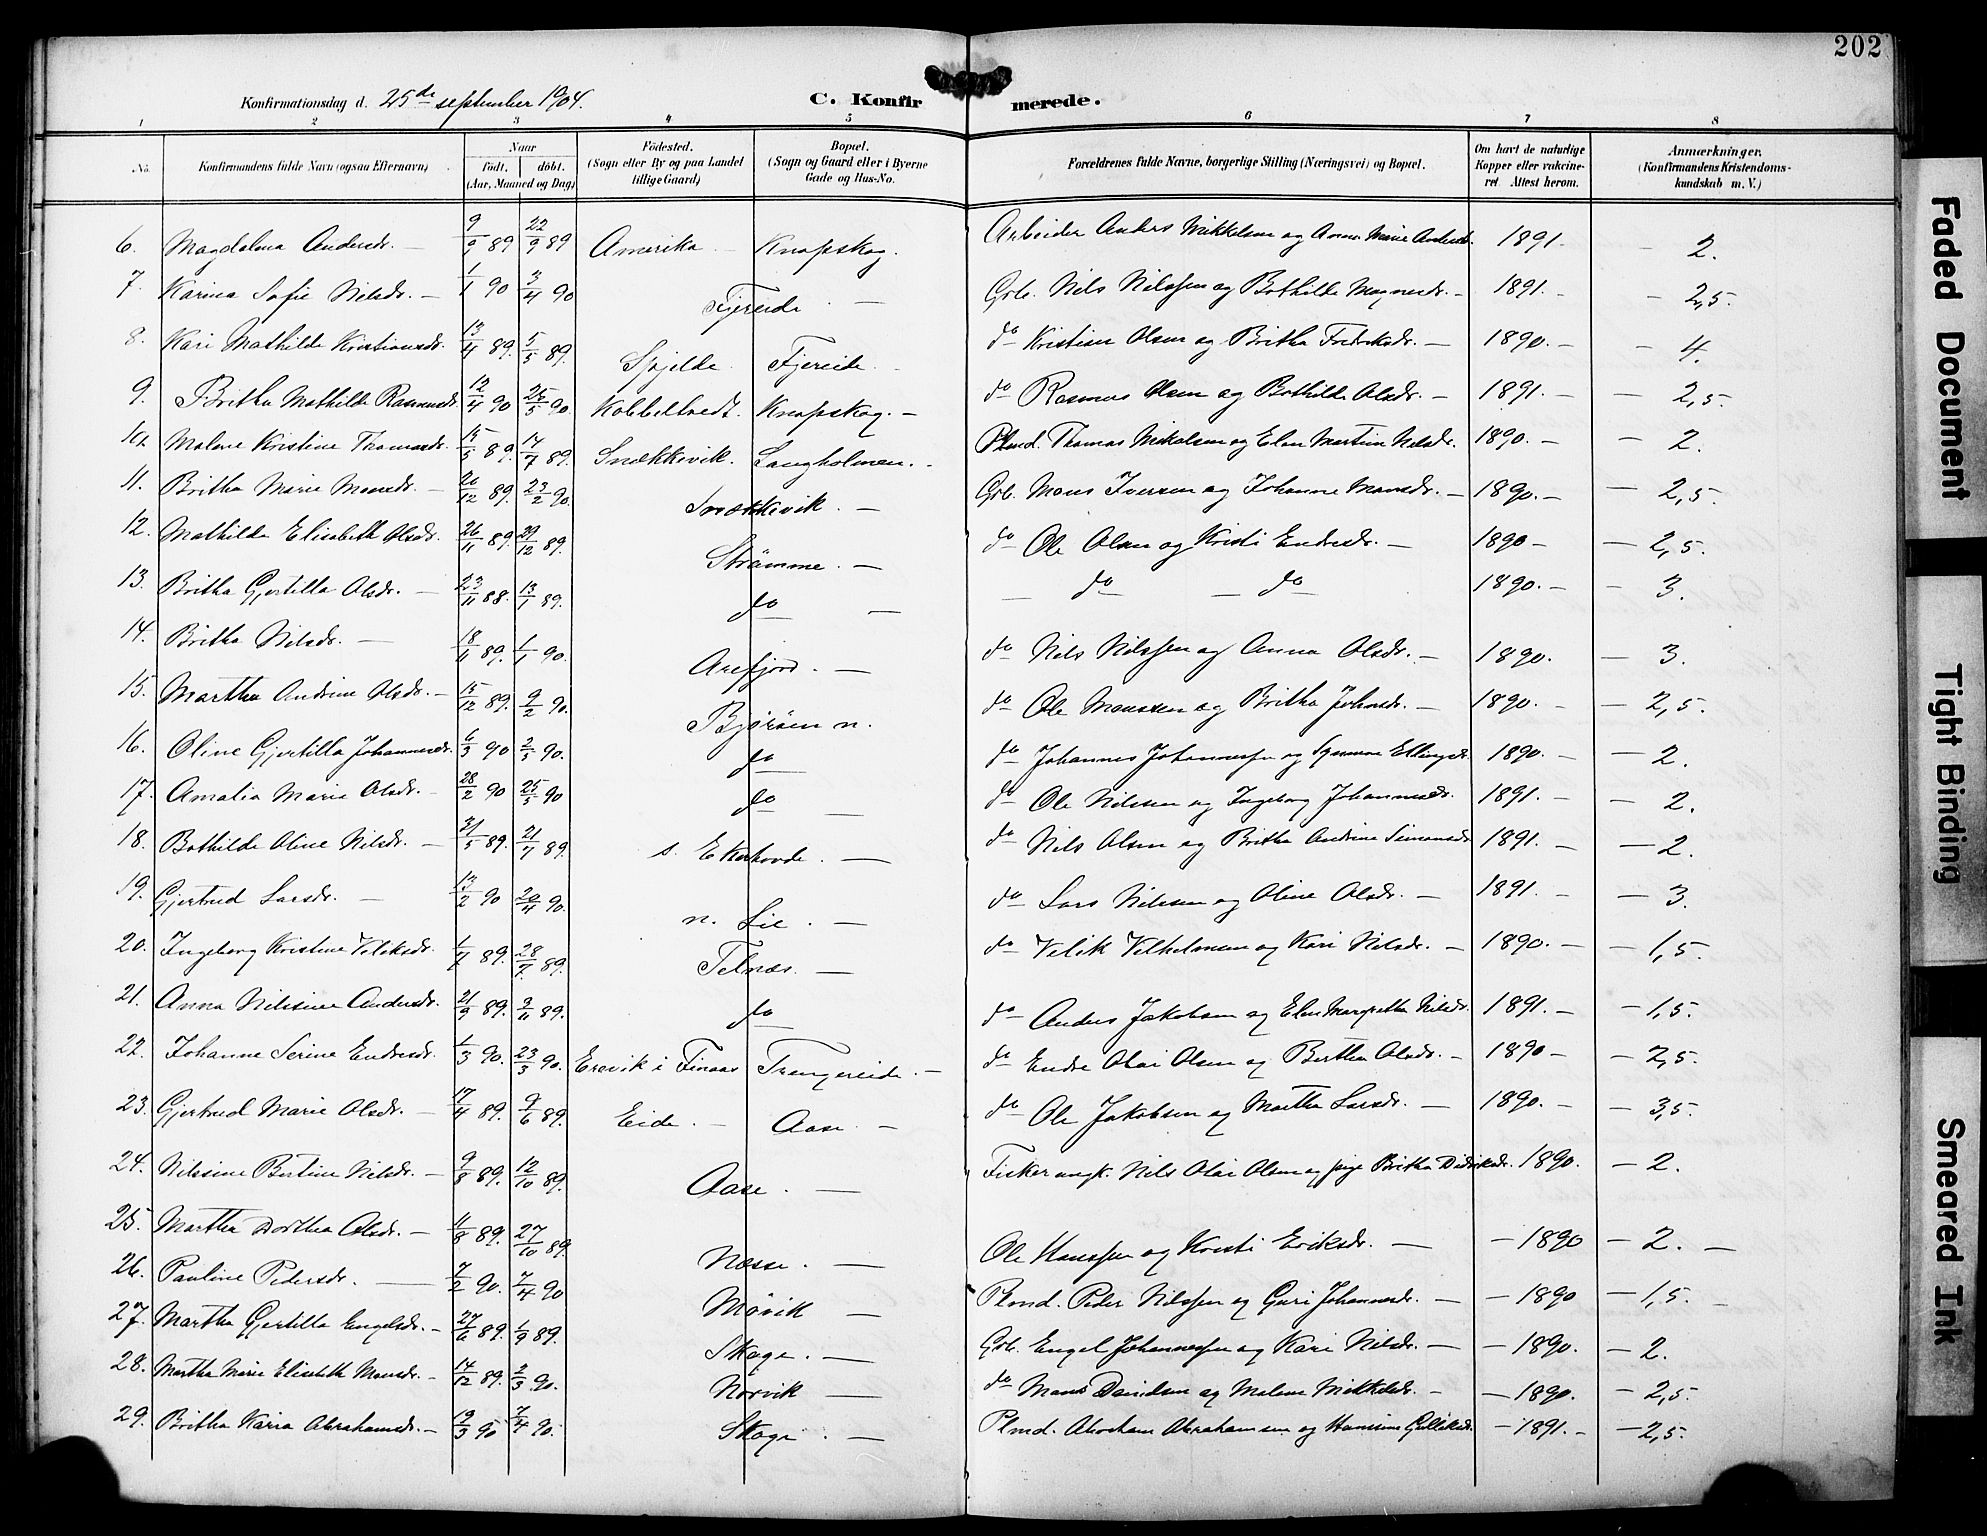 202
Konfirmationsdag d. 25de september 1904. C. Konfirmerede.
1 2 3 4 5 6 7 8
No. Konfirmandens fulde Navn (ogsaa Efternavn) Naar født. døbt. (Aar, Maaned og Dag) Fødested. (Sogn eller By og paa Landet tillige Gaard) Bopæl. (Sogn og Gaard eller i Byerne Gade og Hus-No. Forældrenes fulde Navne, borgerlige Stilling (Næringsvei) og Bopæl. Om havt de naturlige Kopper eller vakcineret. Attest herom. Anmærkninger. (Konfirmandens Kristendomskundskab m. V.)
6. Magdalena Andersdr. — 9/9 89 22/9 89 Amerika — Knapskog. Arbeider Anders Mikkelsen og Anna Marie Andersdr. 1891. — 2.
7. Karina Sofie Nilsdr. — 1/1 90 3/4 90 Fjereide — Grb. Nils Nilssen og Bothilde Magnesdr. — 1891. — 2,5.
8. Kari Mathilde Kristiansdr. 13/4 89. 5/5 89. Spjelde Fjereide. do Kristian Olsen og Britha Fredriksdr. — 1890. — 4.
9. Britha Mathilde Rasmusdr. 12/4 90 26/5 90. Kobbeltvedt. Knapskog. — do Rasmus Olsen og Bothilde Olsdr. — 1891. — 2,5.
10. Malene Kristine Thomasdr. 15/5 89. 14/7 89. Snekkevik. Langholmen. Plmd. Thomas Nikolsen og Elen Martine Nilsdr. 1890. — 2.
11. Britha Marie Monsdr. — 20/12 89. 23/2 90. Snekkevik. — Grb. Mons Iversen og Johanne Monsdr. — 1890. — 2,5.
12. Mathilda Elisabeth Olsdr. 26/11 89. 29/12 89. Strømme. — do Ole Olsen og Kristi Endresdr. — 1890 — 2,5.
13. Britha Gjertilla Olsdr. — 23/11 88. 13/1 89. do — do — do 1890. — 3.
14. Britha Nilsdr. — 18/11 89. 1/1 90. Arefjord. — do Nils Nilssen og Anna Olsdr. — 1890. — 3.
15. Martha Andrine Olsdr. — 15/12 89. 9/2 90. Bjørøen n. do Ole Monssen og Britha Johnsdr. — 1890. — 2,5.
16. Oline Gjertilla Johannesdr. 6/3 90 2/5 90. do do Johannes Johannessen og Ellingsdr. 1890. — 2.
17. Amalia Marie Olsdr. — 28/2 90 25/5 90 do — do Ole Nilssen og Ingeborg Johannesdr. 1891. — 2.
18. Bothilde Oline Nilsdr. — 31/5 89. 21/7 89. s. Ekerhovde. — do Nils Olsen og Britha Andrine Simonsdr. 1891. — 2.
19. Gjertrud Larsdr. — 13/2 90 20/4 90. n. Lie. — do Lars Nilssen og Oline Olsdr. — 1891. — 3.
20. Ingeborg Kristine Veliksdr. 1/7 89. 28/7 89. Telnæs. — do Velik Vilhelmsen og Kari Nilsdr. — 1890. — 1,5.
21. Anna Nilsine Andersdr. 21/9 89. 3/11 89. do — do Anders Jakobsen og Elen Margretha Nilsdr. 1891. — 1,5.
22. Johanne Serine Endresdr. 1/3 90. 23/3 90. Erevik i Finaas Trengereide. — do Endre Olai Olsen og Bertha Olsdr. — 1890 — 2,5.
23. Gjertrud Marie Olsdr. — 17/4 89. 9/6 89. Eide. — Aase. — do Ole Jakobsen og Martha Larsdr. — 1890. — 3,5.
24. Nilsine Bertine Nilsdr. — 9/8 89. 12/10 89. Aase. — Fisker ungk. Nils Olai Olsen og pige Britha Didriksdr. 1890. — 2.
25. Martha Dorthea Olsdr. — 11/8 89. 27/10 89. Næsse. — Ole Hanssen og Kristi Eriksdr. — 1890 — 2. —
26. Pauline Pedersdr. — 7/2 90. 7/4 90 Møvik — Plmd. Peder Nilssen og Guri Johannesdr. — 1890 — 1,5.
27. Martha Gjertilla Engelsdr. — 27/6 89. 1/9 89. Skage. — Grb. Engel Johannessen og Kari Nilsdr. — 1890. — 2.
28. Martha Marie Elisabeth Monsdr. — 14/12 89. 2/3 90. Norvik — do Mons Davidsen og Malene Mikkelsdr. — 1890. — 2,5.
29. Britha Karia Abrahamsdr. — 19/3 90 7/4 90. Skage. — Plmd. Abraham Abrahamsen og Hansine Gulliksdr. — 1891. — 2,5.
Faded Document
Tight Binding
Smeared Ink